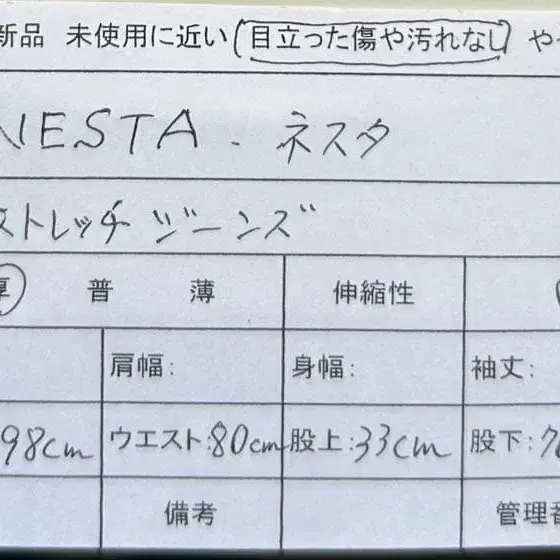 新品 未使用に近い 目立った傷や汚れなし や
NESTA. ネスタ
ストレッチ ジーンズ
厚 普 薄 伸縮性
肩幅: 身幅: 袖丈:
98cm ウエスト:80cm 股上:33cm 股下:7
備考 管理番